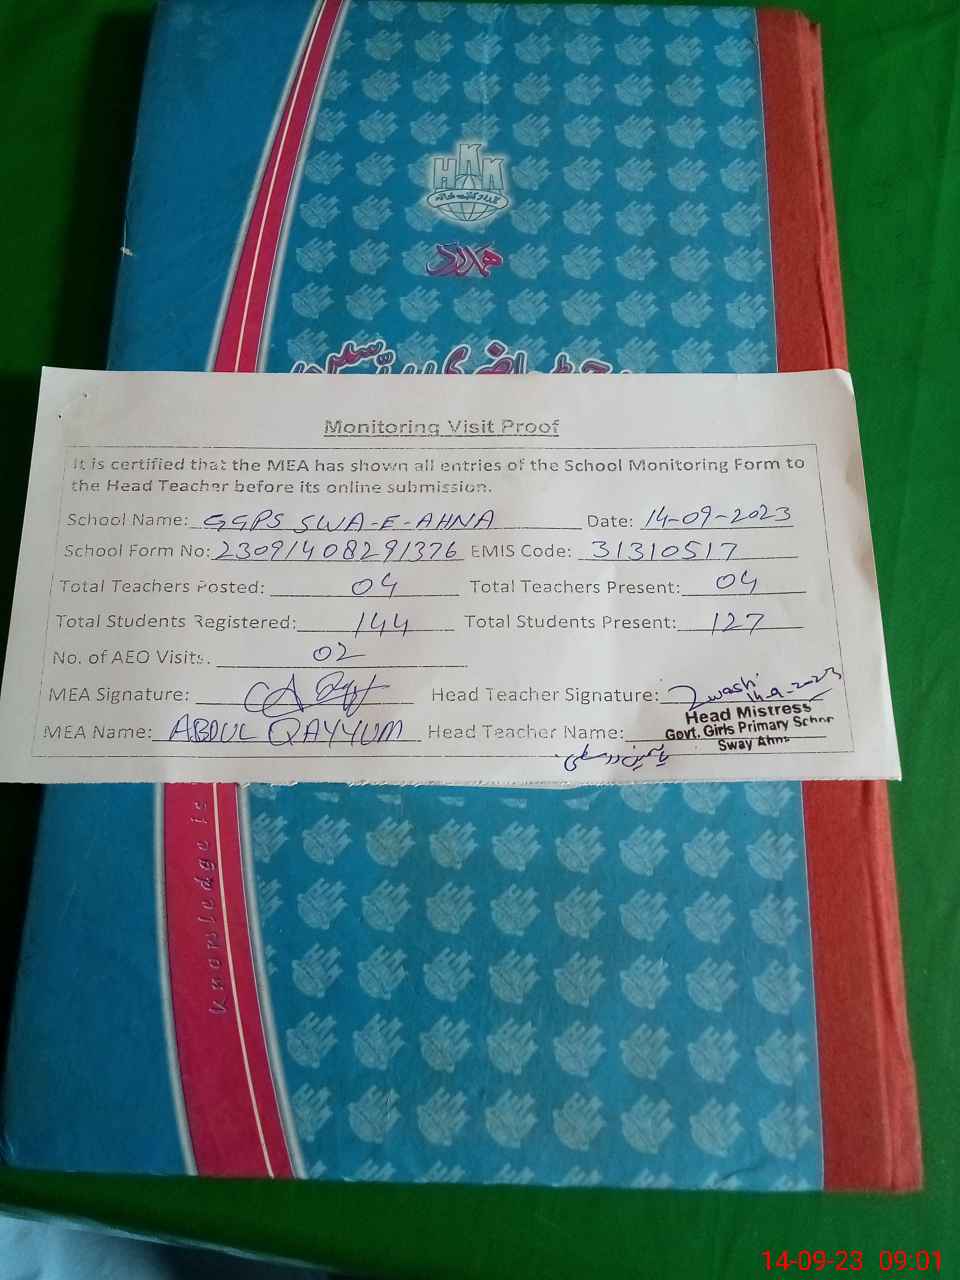 HKK
ہمدرد
Monitoring Visit Proof
It is certified that the MEA has shown all entries of the School Monitoring Form to
the Head Teacher before its online submission.
School Name: GGPS SWA-E-AHNA Date: 14-09-2023
School Form No: 23091408291376 EMIS Code: 31310517
Total Teachers Posted: 04 Total Teachers Present: 04
Total Students Registered: 144 Total Students Present: 127
No. of AEO Visits. 02
MEA Signature: Head Teacher Signature: 14-9-2023
MEA Name: ABDUL QAYYUM Head Teacher Name:
Head Mistress
Govt. Girls Primary School
Sway Ahna
knowledge is
14-09-23 09:01